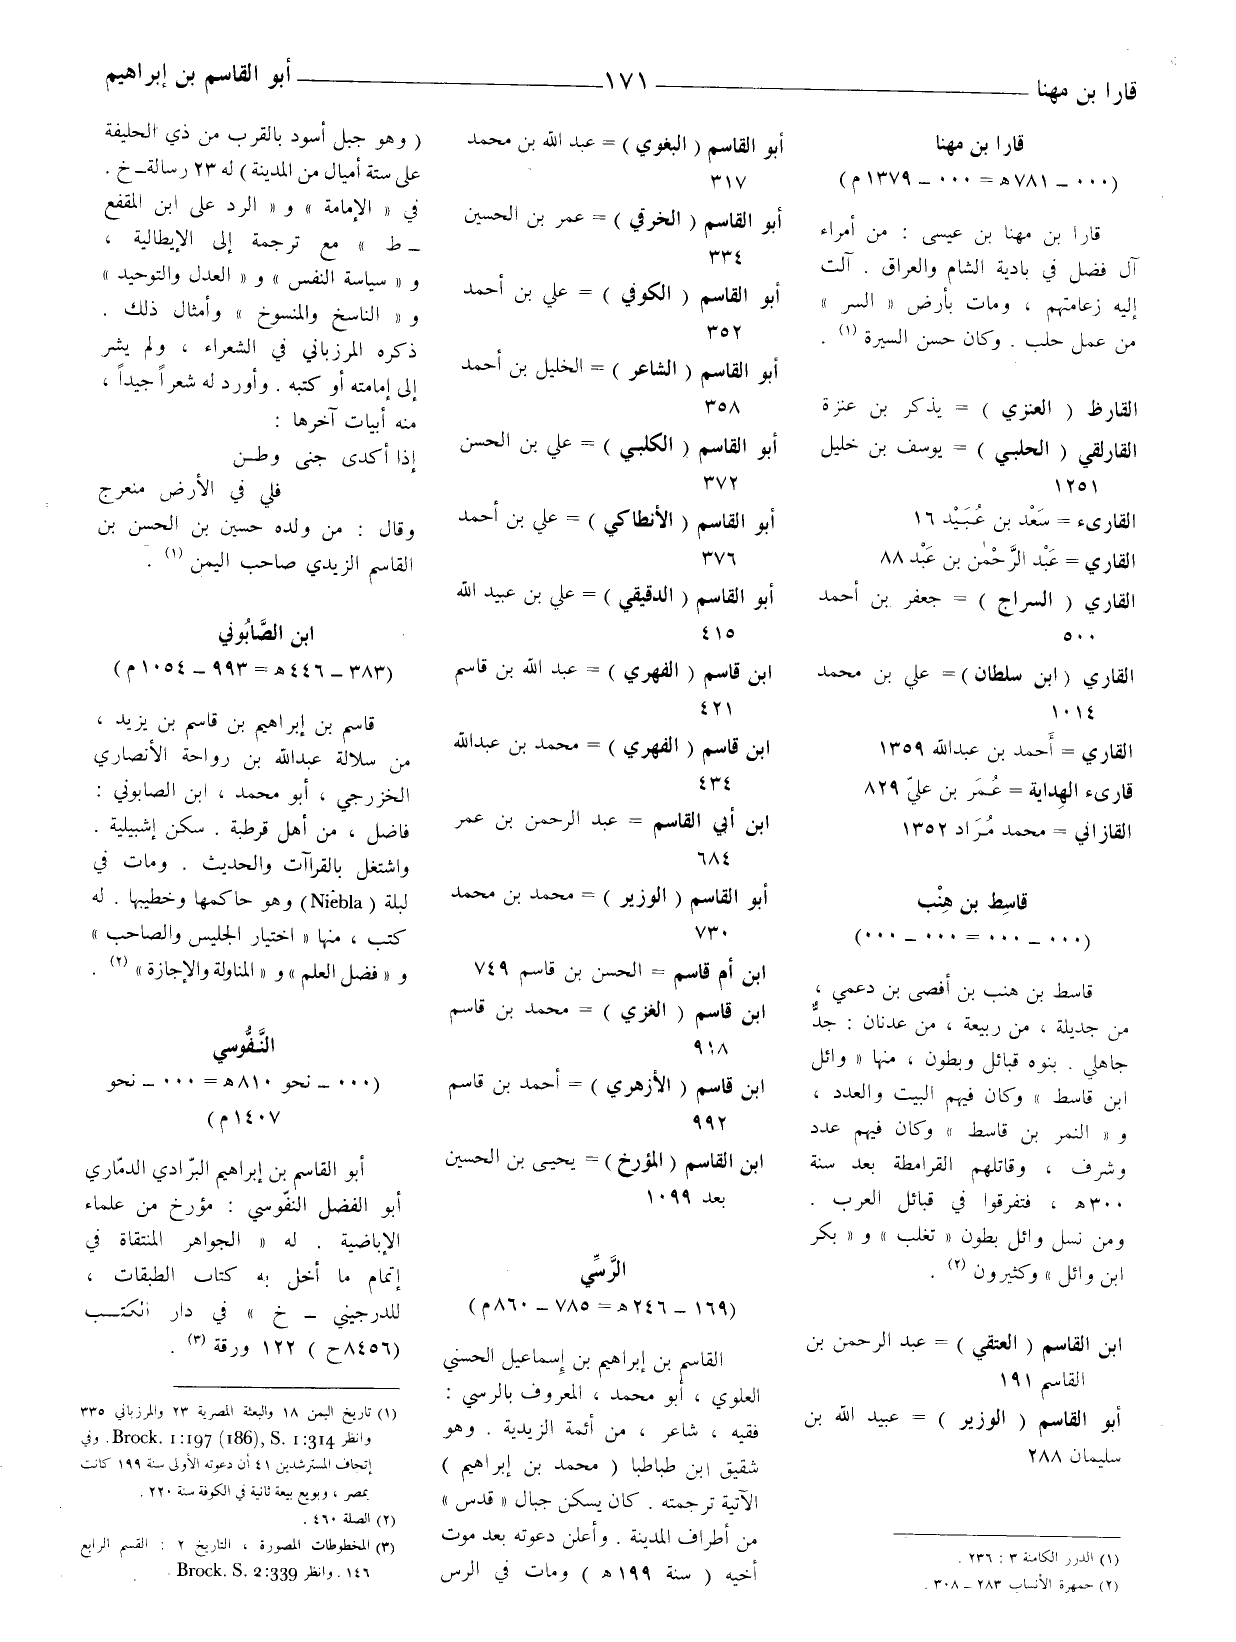 قارا بن مهنا
١٧١
أبو القاسم بن إبراهيم
قارا بن مهنا
(٠٠٠ – ٧٨١ه = ٠٠٠ – ١٣٧٩ م)
قارا بن مهنا بن عيسى : من أمراء
آل فضل في بادية الشام والعراق . آلت
إليه زعامتهم ، ومات بأرض « السر »
من عمل حلب . وكان حسن السيرة (١) .
القارظ ( العنزي ) = يذكر بن عنزة
القارلقي ( الحلبي ) = يوسف بن خليل
١٢٥١
القارىء = سَعْد بن عُبَيْد ١٦
القاري = عَبْد الرَّحْمٰن بن عَبْد ٨٨
القاري ( السراج ) = جعفر بن أحمد
٥٠٠
القاري ( ابن سلطان ) = علي بن محمد
١٠١٤
القاري = أَحمد بن عبدالله ١٣٥٩
قارىء الهِداية = عُمَر بن عليّ ٨٢٩
القازاني = محمد مُرَاد ١٣٥٢
قاسِط بن هِنْب
(٠٠٠ – ٠٠٠ = ٠٠٠ – ٠٠٠)
قاسط بن هنب بن أفصى بن دعمي ،
من جديلة ، من ربيعة ، من عدنان : جدٌّ
جاهلي . بنوه قبائل وبطون ، منها « وائل
ابن قاسط » وكان فيهم البيت والعدد ،
و « النمر بن قاسط » وكان فيهم عدد
وشرف ، وقاتلهم القرامطة بعد سنة
٣٠٠ه ، فتفرقوا في قبائل العرب .
ومن نسل وائل بطون « تغلب » و « بكر
ابن وائل » وكثيرون (٢) .
ابن القاسم ( العتقي ) = عبد الرحمن بن
القاسم ١٩١
أبو القاسم ( الوزير ) = عبيد الله بن
سليمان ٢٨٨
(١) الدرر الكامنة ٣ : ٢٣٦ .
(٢) جمهرة الأنساب ٢٨٣ – ٣٠٨ .
أبو القاسم ( البغوي ) = عبد الله بن محمد
٣١٧
أبو القاسم ( الخرقي ) = عمر بن الحسين
٣٣٤
أبو القاسم ( الكوفي ) = علي بن أحمد
٣٥٢
أبو القاسم ( الشاعر ) = الخليل بن أحمد
٣٥٨
أبو القاسم ( الكلبي ) = علي بن الحسن
٣٧٢
أبو القاسم ( الأنطاكي ) = علي بن أحمد
٣٧٦
أبو القاسم ( الدقيقي ) = علي بن عبيد الله
٤١٥
ابن قاسم ( الفهري ) = عبد الله بن قاسم
٤٢١
ابن قاسم ( الفهري ) = محمد بن عبدالله
٤٣٤
ابن أبي القاسم = عبد الرحمن بن عمر
٦٨٤
أبو القاسم ( الوزير ) = محمد بن محمد
٧٣٠
ابن أم قاسم = الحسن بن قاسم ٧٤٩
ابن قاسم ( الغزي ) = محمد بن قاسم
٩١٨
ابن قاسم ( الأزهري ) = أحمد بن قاسم
٩٩٢
ابن القاسم ( المؤرخ ) = يحيى بن الحسين
بعد ١٠٩٩
الرَّسِّي
(١٦٩ – ٢٤٦ه = ٧٨٥ – ٨٦٠م)
القاسم بن إبراهيم بن إسماعيل الحسني
العلوي ، أبو محمد ، المعروف بالرسي :
فقيه ، شاعر ، من أئمة الزيدية . وهو
شقيق ابن طباطبا ( محمد بن إبراهيم )
الآتية ترجمته . كان يسكن جبال « قدس »
من أطراف المدينة . وأعلن دعوته بعد موت
أخيه ( سنة ١٩٩ه ) ومات في الرس
( وهو جبل أسود بالقرب من ذي الحليفة
على ستة أميال من المدينة ) له ٢٣ رسالة–خ .
في « الإمامة » و « الرد على ابن المقفع
– ط » مع ترجمة إلى الإيطالية ،
و « سياسة النفس » و « العدل والتوحيد »
و « الناسخ والمنسوخ » وأمثال ذلك .
ذكره المرزباني في الشعراء ، ولم يشر
إلى إمامته أو كتبه . وأورد له شعراً جيداً ،
منه أبيات آخرها :
إذا أكدى جنى وطـن
فلي في الأرض منعرج
وقال : من ولده حسين بن الحسن بن
القاسم الزيدي صاحب اليمن (١) .
ابن الصَّابُوني
(٣٨٣ – ٤٤٦ه = ٩٩٣ – ١٠٥٤م)
قاسم بن إبراهيم بن قاسم بن يزيد ،
من سلالة عبدالله بن رواحة الأنصاري
الخزرجي ، أبو محمد ، ابن الصابوني :
فاضل ، من أهل قرطبة . سكن إشبيلية .
واشتغل بالقراآت والحديث . ومات في
لبلة ( Niébla ) وهو حاكمها وخطيبها . له
كتب ، منها « اختيار الجليس والصاحب »
و « فضل العلم » و « المناولة والإجازة » (٢) .
النَّفُّوسي
(٠٠٠ – نحو ٨١٠ه = ٠٠٠ – نحو
١٤٠٧م)
أبو القاسم بن إبراهيم البرّادي الدمّاري
أبو الفضل النفّوسي : مؤرخ من علماء
الإباضية . له « الجواهر المنتقاة في
إتمام ما أخل به كتاب الطبقات ،
للدرجيني – خ » في دار الكتـب
(٨٤٥٦ح ) ١٢٢ ورقة (٣) .
(١) تاريخ اليمن ١٨ والبعثة المصرية ٢٣ والمرزباني ٣٣٥
وانظر Brock. 1:197 (186), S. 1:314. وفي
إتحاف المسترشدين ٤١ أن دعوته الأولى سنة ١٩٩ كانت
بمصر ، وبويع بيعة ثانية في الكوفة سنة ٢٢٠ .
(٢) الصلة ٤٦٠ .
(٣) المخطوطات المصورة ، التاريخ ٢ : القسم الرابع
١٤٦ . وانظر Brock. S. 2:339 .